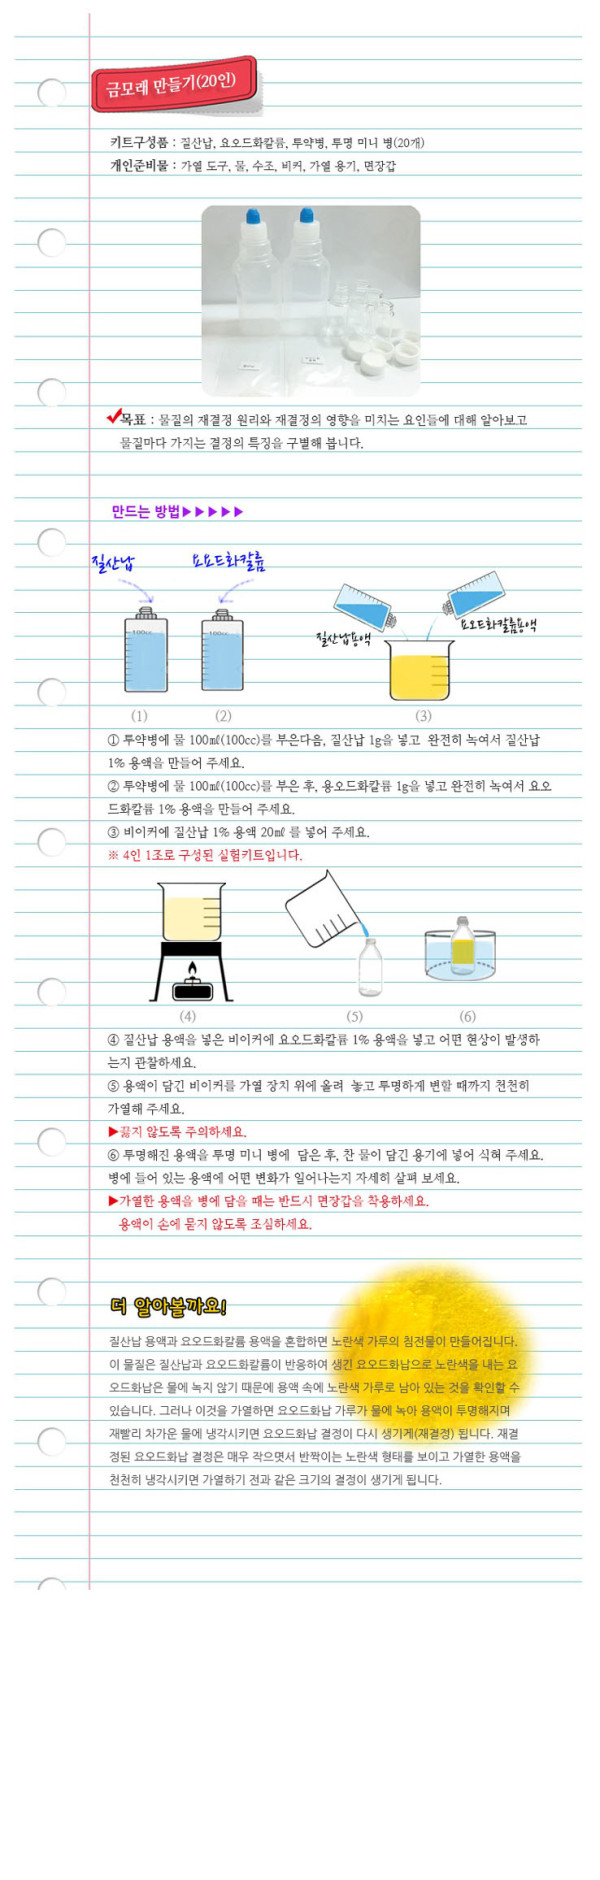 금모래 만들기(20인)
키트구성품 : 질산납, 요오드화칼륨, 투약병, 투명 미니 병(20개)
개인준비물 : 가열 도구, 물, 수조, 비커, 가열 용기, 면장갑
목표 : 물질의 재결정 원리와 재결정의 영향을 미치는 요인들에 대해 알아보고
물질마다 가지는 결정의 특징을 구별해 봅니다.
만드는 방법▶▶▶▶▶
질산납
요오드화칼륨
100cc
100cc
질산납용액
요오드화칼륨용액
(1)
(2)
(3)
① 투약병에 물 100㎖(100cc)를 부은다음, 질산납 1g을 넣고 완전히 녹여서 질산납
1% 용액을 만들어 주세요.
② 투약병에 물 100㎖(100cc)를 부은 후, 용오드화칼륨 1g을 넣고 완전히 녹여서 요오
드화칼륨 1% 용액을 만들어 주세요.
③ 비이커에 질산납 1% 용액 20㎖ 를 넣어 주세요.
※ 4인 1조로 구성된 실험키트입니다.
(4)
(5)
(6)
④ 질산납 용액을 넣은 비이커에 요오드화칼륨 1% 용액을 넣고 어떤 현상이 발생하
는지 관찰하세요.
⑤ 용액이 담긴 비이커를 가열 장치 위에 올려 놓고 투명하게 변할 때까지 천천히
가열해 주세요.
▶끓지 않도록 주의하세요.
⑥ 투명해진 용액을 투명 미니 병에 담은 후, 찬 물이 담긴 용기에 넣어 식혀 주세요.
병에 들어 있는 용액에 어떤 변화가 일어나는지 자세히 살펴 보세요.
▶가열한 용액을 병에 담을 때는 반드시 면장갑을 착용하세요.
용액이 손에 묻지 않도록 조심하세요.
더 알아볼까요!
질산납 용액과 요오드화칼륨 용액을 혼합하면 노란색 가루의 침전물이 만들어집니다.
이 물질은 질산납과 요오드화칼륨이 반응하여 생긴 요오드화납으로 노란색을 내는 요
오드화납은 물에 녹지 않기 때문에 용액 속에 노란색 가루로 남아 있는 것을 확인할 수
있습니다. 그러나 이것을 가열하면 요오드화납 가루가 물에 녹아 용액이 투명해지며
재빨리 차가운 물에 냉각시키면 요오드화납 결정이 다시 생기게(재결정) 됩니다. 재결
정된 요오드화납 결정은 매우 작으면서 반짝이는 노란색 형태를 보이고 가열한 용액을
천천히 냉각시키면 가열하기 전과 같은 크기의 결정이 생기게 됩니다.